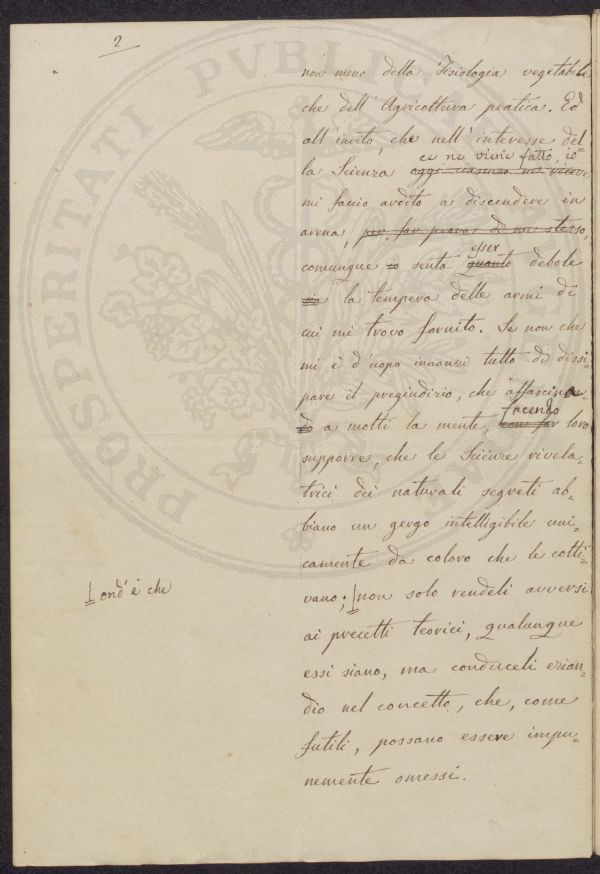 2
non meno della Fisiologia vegetabile
che dell' Agricoltura pratica. Ed
all' invito, che nell' interesse del=
ce ne viene fatto, io
la Scienza oggi ciascuno ne riceve
mi faccio ardito a discendere in
arena, per far prova di me stesso,
esser
comunque io senta quanto debole
sia la tempera delle armi di
cui mi trovo fornito. Se non che
mi è d'uopo innanzi tutto di dissi=
pare il pregiudizio, che affascinan=
facendo
do a molti la mente, loro
supporre, che le Scienze rivela=
trici dei naturali segreti ab=
biano un gergo intelligibile uni=
camente da coloro che le colti=
ond' è che
vano; non solo rendeli avversi
ai precetti teorici, qualunque
essi siano, ma conduceli ezian=
dio nel concetto, che, come
futili, possano essere impu=
nemente omessi.
PROSPERITATI PVBLICAE